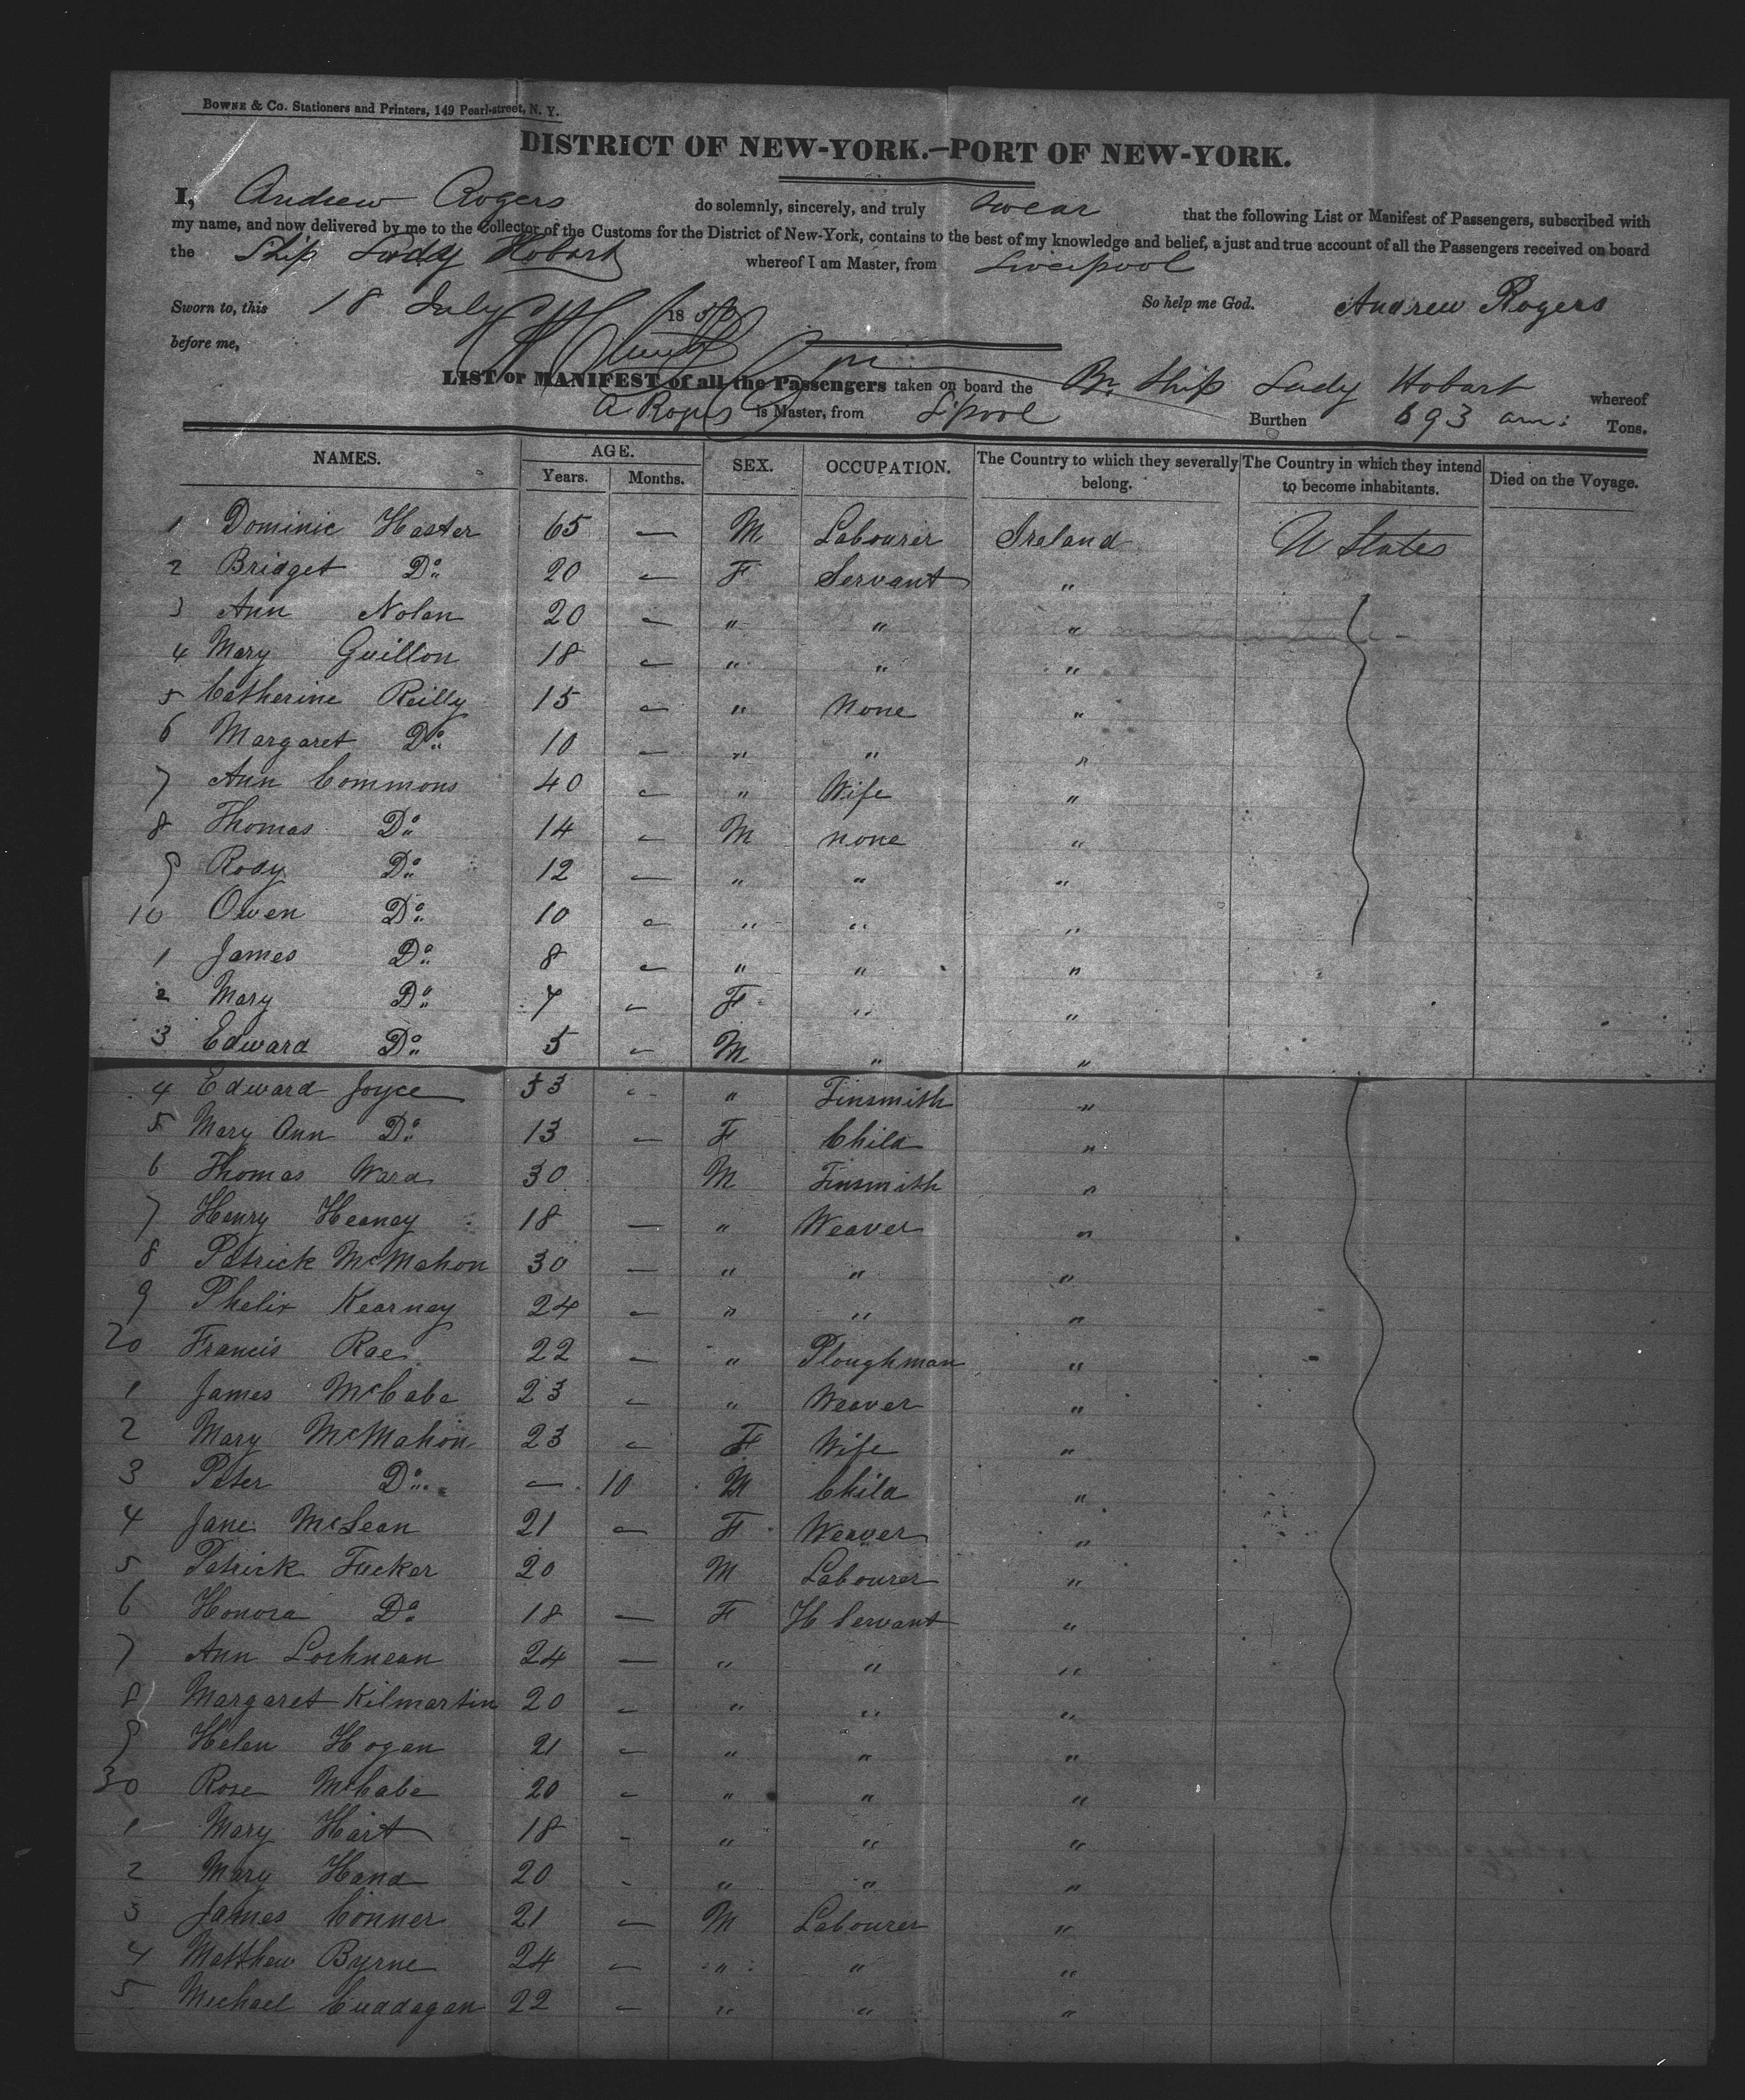 BOWNE & Co. Stationers and Printers, 149 Pearl-street, N. Y.
DISTRICT OF NEW-YORK.—PORT OF NEW-YORK.
I, Andrew Rogers do solemnly, sincerely, and truly swear that the following List or Manifest of Passengers, subscribed with
my name, and now delivered by me to the Collector of the Customs for the District of New-York, contains to the best of my knowledge and belief, a just and true account of all the Passengers received on board
the Ship Lady Hobart whereof I am Master, from Liverpool
Sworn to, this 18 July 18 So help me God. Andrew Rogers
before me,
LIST or MANIFEST of all the Passengers taken on board the Br. Ship Lady Hobart whereof
A Rogers is Master, from L'pool Burthen 693 Tons.
NAMES. AGE. SEX. OCCUPATION. The Country to which they severally belong. The Country in which they intend to become inhabitants. Died on the Voyage.
Years. Months.
1 Dominic Haster 65 — M Labourer Ireland U States
2 Bridget Do 20 — F Servant "
3 Ann Nolan 20 — " " "
4 Mary Guillon 18 — " " "
5 Catherine Reilly 15 — " None "
6 Margaret Do 10 — " " "
7 Ann Commons 40 — " Wife "
8 Thomas Do 14 — M none "
9 Rody Do 12 — " " "
10 Owen Do 10 — " " "
1 James Do 8 — " " "
2 Mary Do 7 — F " "
3 Edward Do 5 — M " "
4 Edward Joyce 53 — " Tinsmith "
5 Mary Ann Do 13 — F Child "
6 Thomas Ward 30 M Tinsmith "
7 Henry Heaney 18 — " Weaver "
8 Patrick McMahon 30 — " " "
9 Phelix Kearney 24 — " " "
20 Francis Rae 22 — " Ploughman "
1 James McCabe 23 — " Weaver "
2 Mary McMahon 23 — F Wife "
3 Peter Do — 10 M Child "
4 Jane McLean 21 — F Weaver "
5 Patrick Tucker 20 M Labourer "
6 Honora Do 18 — F H Servant "
7 Ann Lochnean 24 — " " "
8 Margaret Kilmartin 20 — " " "
9 Helen Hogan 21 — " " "
30 Rose McCabe 20 — " " "
1 Mary Hart 18 - " " "
2 Mary Hand 20 - " " "
3 James Conner 21 — M Labourer "
4 Matthew Byrne 24 — " " "
5 Michael Cuddagan 22 — " " "